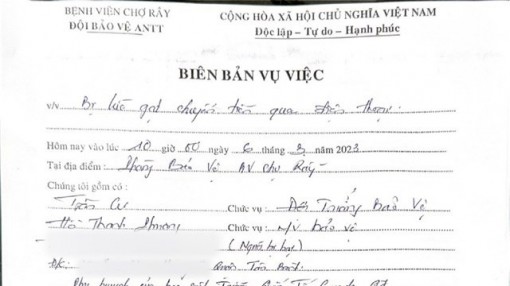 BỆNH VIỆN CHỢ RẪY
ĐỘI BẢO VỆ ANTT
CỘNG HÒA XÃ HỘI CHỦ NGHĨA VIỆT NAM
Độc lập – Tự do – Hạnh phúc
BIÊN BẢN VỤ VIỆC
v/v Bị lừa gạt chuyển tiền qua điện thoại
Hôm nay vào lúc 10 giờ 00 ngày 6 tháng 3 năm 2023
Tại địa điểm: Phòng Bảo Vệ BV Chợ Rẫy
Chúng tôi gồm có:
Chức vụ: Đội Trưởng Bảo Vệ
Chức vụ: n/v bảo vệ
(Người bị hại)